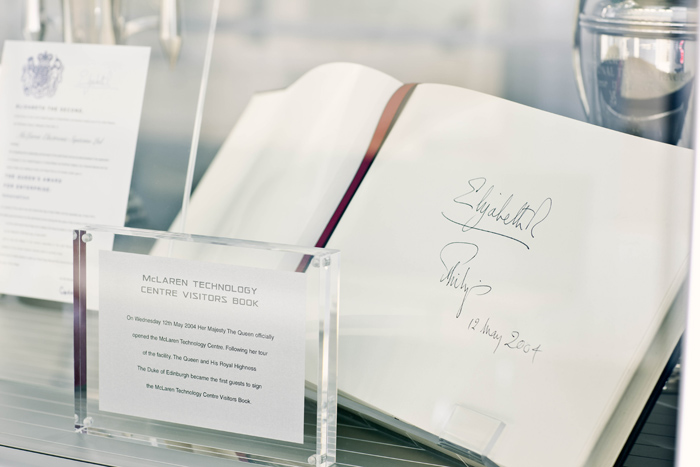 ELIZABETH THE SECOND
McLaren Electronic Systems Ltd
THE QUEEN'S AWARD
FOR ENTERPRISE
Elizabeth R
Philip
12 May 2004
McLAREN TECHNOLOGY
CENTRE VISITORS BOOK
On Wednesday 12th May 2004 Her Majesty The Queen officially
opened the McLaren Technology Centre. Following her tour
of the facility, The Queen and His Royal Highness
The Duke of Edinburgh became the first guests to sign
the McLaren Technology Centre Visitors Book